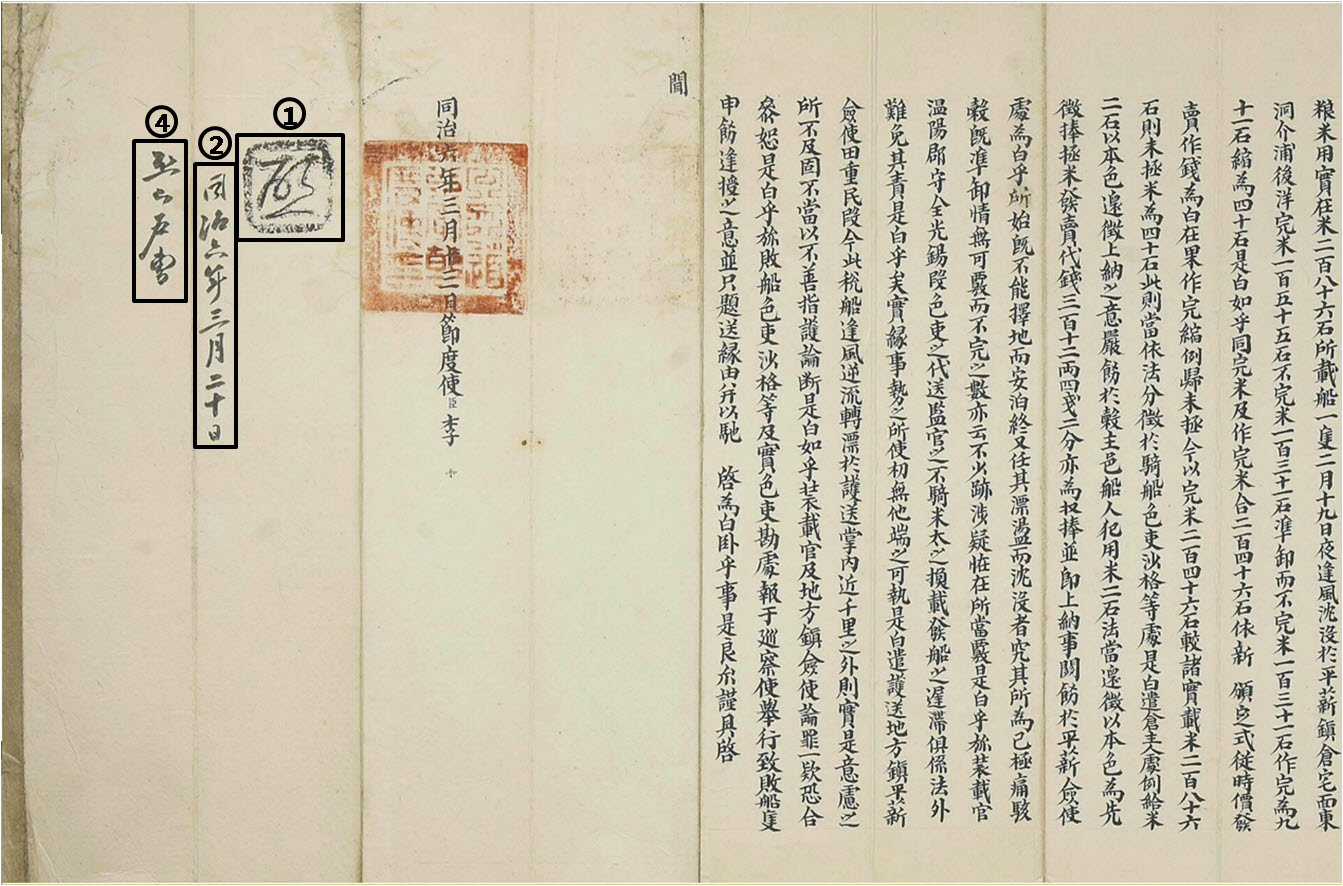 粮米用實在米二百八十六石所載船一隻二月十九日夜逢風沈沒於平薪鎭倉宅面東
洞介浦後洋完米一百五十五石不完米一百三十一石準卸而不完米一百三十一石作完爲九
十一石縮爲四十石是白如乎同完米及作完米合二百四十六石依新 頒定式從時價發
賣作錢爲白在果作完縮例歸未拯今以完米二百四十六石較諸實載米二百八十六
石則未拯米爲四十石此則當依法分徵於騎船色吏沙格等處是白遣倉主人處例給米
二石以本色還徵上納之意嚴飭於穀主邑船人犯用米二石法當還徵以本色爲先
徵捧拯米發賣代錢三百十二兩四戔二分亦爲收捧並卽上納事關飭於平薪僉使
處爲白乎所始旣不能擇地而安泊終又任其漂盪而沈沒者究其所爲已極痛駭
穀旣準卸情無可覈而不完之數亦云不少跡涉疑怪在所當覈是白乎旀裝載官
溫陽郡守金光錫段色吏之代送監官之不騎米太之損載發船之遲滯俱係法外
難免其責是白乎矣實緣事勢之所使初無他端之可執是白遣護送地方鎭平薪
僉使田重民段今此稅船逢風逆流轉漂於護送掌內近千里之外則實是意慮之
所不及固不當以不善指護論断是白如乎裝載官及地方鎭僉使論罪一欵恐合
叅恕是白乎旀敗船色吏沙格等及實色吏勘處報于巡察使擧行致敗船隻
申飭逢授之意並只題送緣由幷以馳 啓爲白臥乎事是良尒謹具啓
聞
同治六年三月初二日節度使臣李
①
啓
②
同治六年三月二十日
④
戶曹